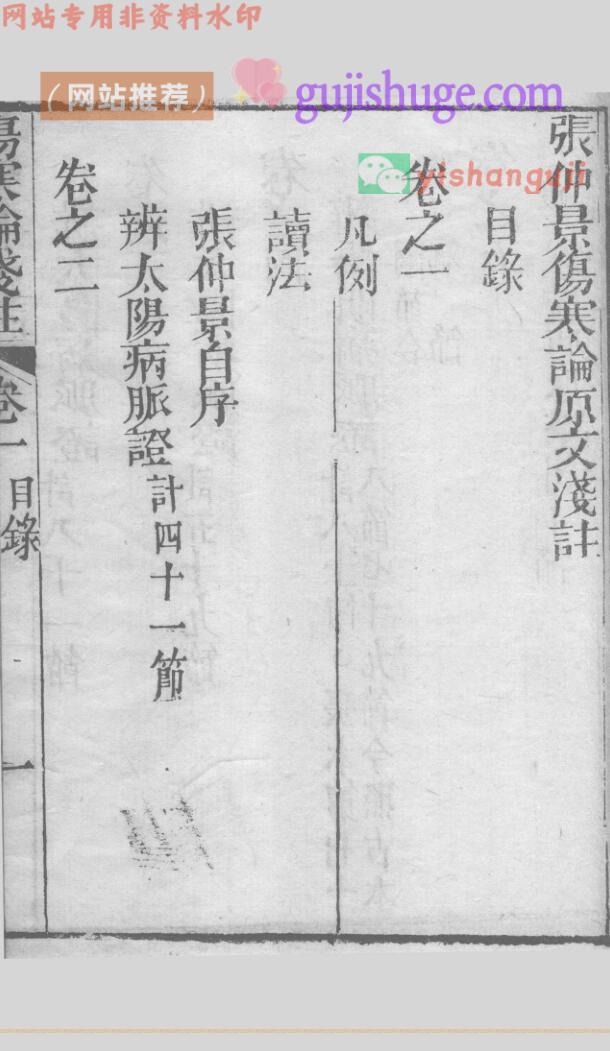 网站专用非资料水印
（网站推荐）
gujishuge.com
yishanguji
張仲景傷寒論原文淺註
目錄
卷之一
凡例
讀法
張仲景自序
辨太陽病脈證計四十一節
卷之二
傷寒論淺註
卷一
目錄
一